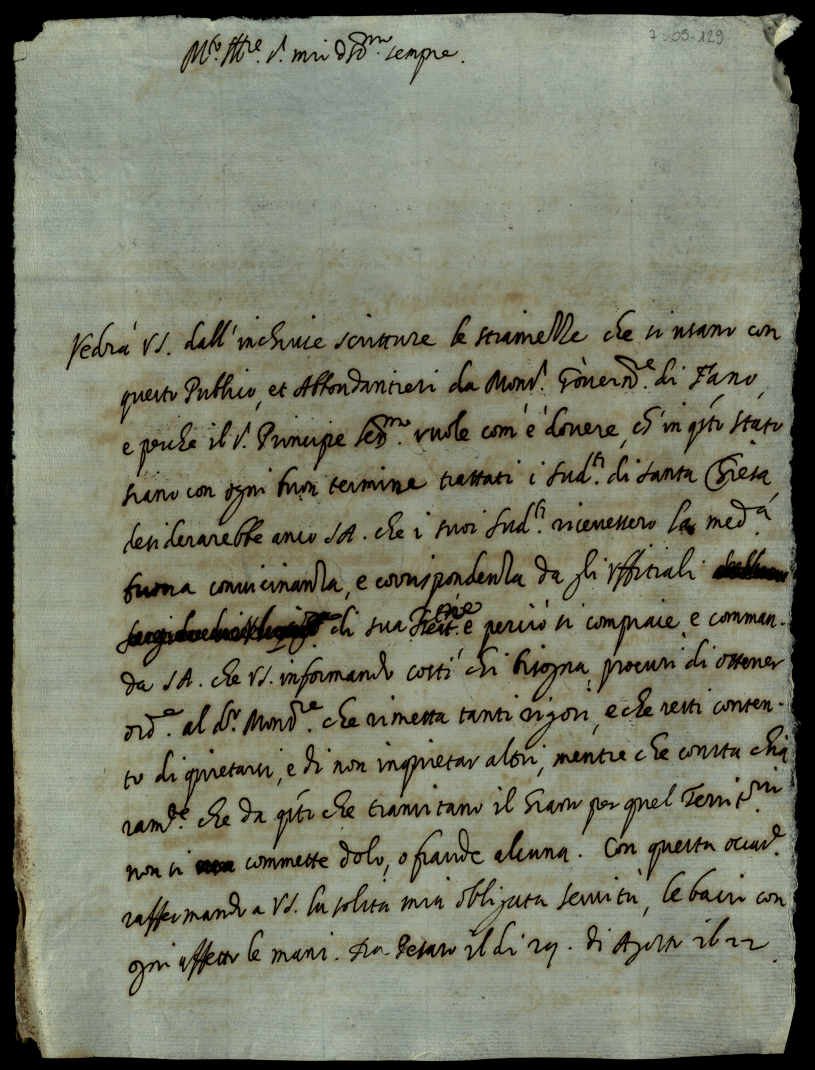 7-05-129
M.to Ill.re S.r mio oss.mo sempre.
Vedrà VS. dall'inchiuse scritture le stranezze che si usano con
questo Publico, et Abbondantieri da Mons.r Govern.re di Fano,
e perche il S.r Principe Ser.mo vuole com'è dovere, ch'in q.sto stato
siano con ogni buon termine trattati i sud.ti di santa Chiesa,
desiderarebbe anco SA. che i suoi sud.ti ricevessero la med.a
buona convicinanza, e corrispondenza da gli Uffitiali
di sua e perciò si compiace e comman-
da SA. che VS. informando costì chi bisogna, procuri di ottener
ord.e al d.o Mons.re che rimetta tanti rigori, e che resti conten-
to di quietarsi, e di non inquietar altri, mentre che consta chia
ram.te che da q.sti che transitano il Grano per quel Territ.rio
non si commette dolo, o fraude alcuna. Con questa occas.e
raffermando a VS. la solita mia obligata servitù, le bacio con
ogni affetto le mani. Da Pesaro il dì 29. di Agosto 1622